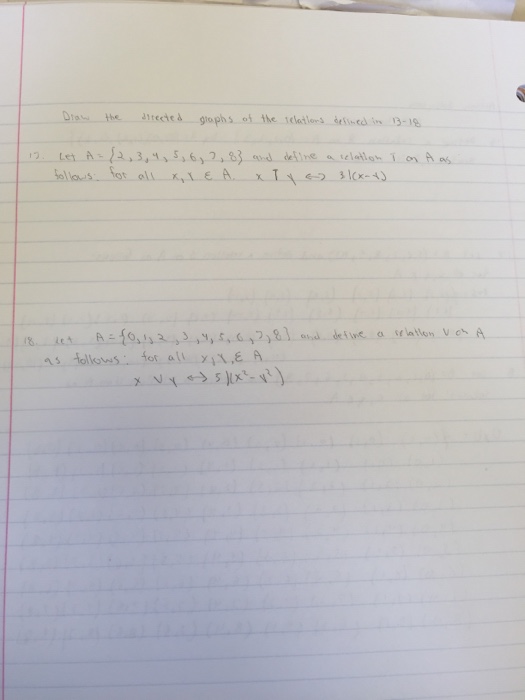 Draw the directed graphs of the relations defined in 13-18
17. Let A = {2, 3, 4, 5, 6, 7, 8} and define a relation T on A as
follows. for all x, Y ∈ A. x T y ⟷ 3|(x-y)
18 Let A = {0, 1, 2, 3, 4, 5, 6, 7, 8} and define a relation V on A
as follows: for all x, y, ∈ A
x V y ⟷ 5|(x²-y²)